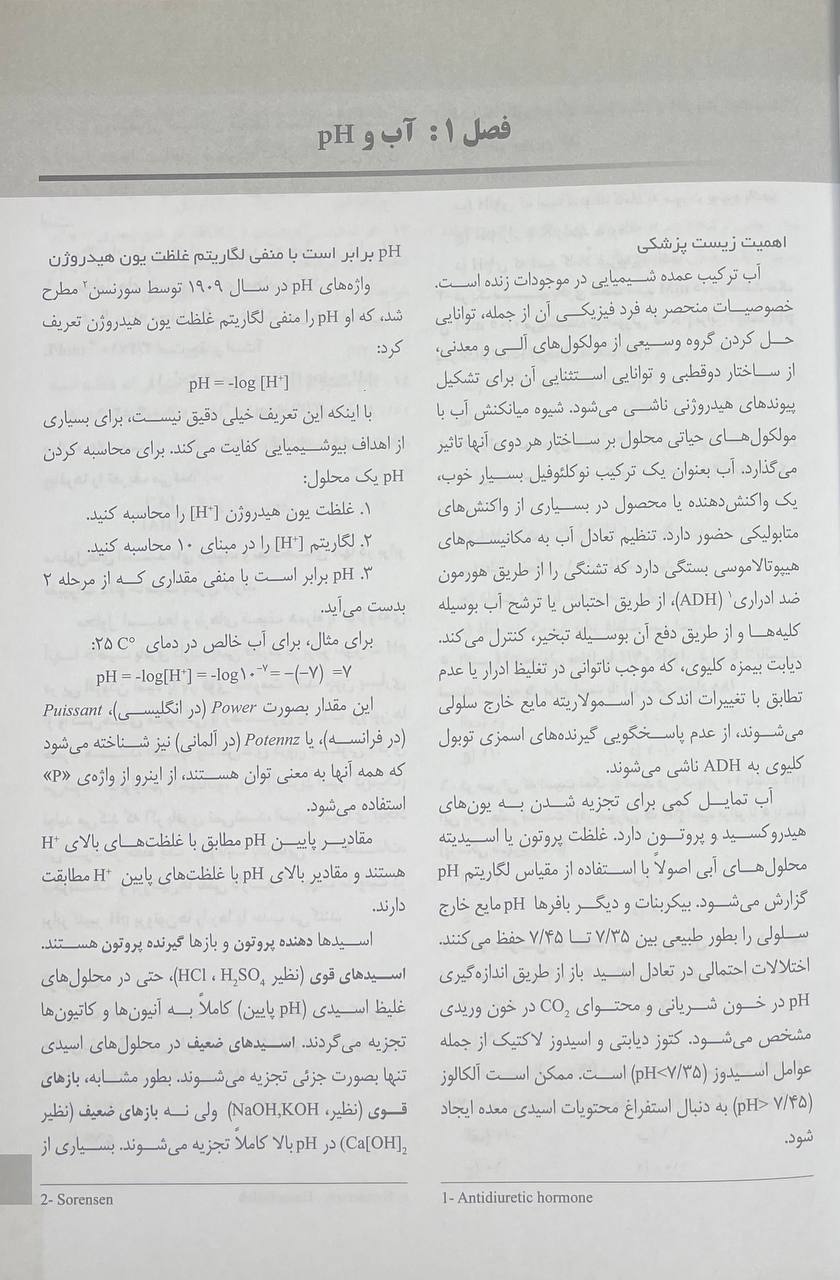 فصل ۱: آب و pH
اهمیت زیست پزشکی
آب ترکیب عمده شیمیایی در موجودات زنده است.
خصوصیات منحصر به فرد فیزیکی آن از جمله، توانایی
حل کردن گروه وسیعی از مولکول‌های آلی و معدنی،
از ساختار دوقطبی و توانایی استثنایی آن برای تشکیل
پیوندهای هیدروژنی ناشی می‌شود. شیوه میانکنش آب با
مولکول‌های حیاتی محلول بر ساختار هر دوی آنها تاثیر
می‌گذارد. آب بعنوان یک ترکیب نوکلئوفیل بسیار خوب،
یک واکنش‌دهنده یا محصول در بسیاری از واکنش‌های
متابولیکی حضور دارد. تنظیم تعادل آب به مکانیسم‌های
هیپوتالاموسی بستگی دارد که تشنگی را از طریق هورمون
ضد ادراری¹ (ADH)، از طریق احتباس یا ترشح آب بوسیله
کلیه‌ها و از طریق دفع آن بوسیله تبخیر، کنترل می‌کند.
دیابت بیمزه کلیوی، که موجب ناتوانی در تغلیظ ادرار یا عدم
تطابق با تغییرات اندک در اسمولاریته مایع خارج سلولی
می‌شوند، از عدم پاسخگویی گیرنده‌های اسمزی توبول
کلیوی به ADH ناشی می‌شوند.
آب تمایل کمی برای تجزیه شدن به یون‌های
هیدروکسید و پروتون دارد. غلظت پروتون یا اسیدیته
محلول‌های آبی اصولاً با استفاده از مقیاس لگاریتم pH
گزارش می‌شود. بیکربنات و دیگر بافرها pH مایع خارج
سلولی را بطور طبیعی بین ۷/۳۵ تا ۷/۴۵ حفظ می‌کنند.
اختلالات احتمالی در تعادل اسید باز از طریق اندازه‌گیری
pH در خون شریانی و محتوای CO₂ در خون وریدی
مشخص می‌شود. کتوز دیابتی و اسیدوز لاکتیک از جمله
عوامل اسیدوز (pH<۷/۳۵) است. ممکن است آلکالوز
(pH> ۷/۴۵) به دنبال استفراغ محتویات اسیدی معده ایجاد
شود.
1- Antidiuretic hormone
pH برابر است با منفی لگاریتم غلظت یون هیدروژن
واژه‌های pH در سال ۱۹۰۹ توسط سورنسن² مطرح
شد، که او pH را منفی لگاریتم غلظت یون هیدروژن تعریف
کرد:
pH = -log [H⁺]
با اینکه این تعریف خیلی دقیق نیست، برای بسیاری
از اهداف بیوشیمیایی کفایت می‌کند. برای محاسبه کردن
pH یک محلول:
۱. غلظت یون هیدروژن [H⁺] را محاسبه کنید.
۲. لگاریتم [H⁺] را در مبنای ۱۰ محاسبه کنید.
۳. pH برابر است با منفی مقداری که از مرحله ۲
بدست می‌آید.
برای مثال، برای آب خالص در دمای ۲۵ C°:
pH = -log[H⁺] = -log۱۰⁻⁷ = −(−۷) =۷
این مقدار بصورت Power (در انگلیسی)، Puissant
(در فرانسه)، یا Potennz (در آلمانی) نیز شناخته می‌شود
که همه آنها به معنی توان هستند، از اینرو از واژه‌ی «P»
استفاده می‌شود.
مقادیر پایین pH مطابق با غلظت‌های بالای H⁺
هستند و مقادیر بالای pH با غلظت‌های پایین H⁺ مطابقت
دارند.
اسیدها دهنده پروتون و بازها گیرنده پروتون هستند.
اسیدهای قوی (نظیر HCl ، H₂SO₄)، حتی در محلول‌های
غلیظ اسیدی (pH پایین) کاملاً به آنیون‌ها و کاتیون‌ها
تجزیه می‌گردند. اسیدهای ضعیف در محلول‌های اسیدی
تنها بصورت جزئی تجزیه می‌شوند. بطور مشابه، بازهای
قوی (نظیر، NaOH,KOH) ولی نه بازهای ضعیف (نظیر
Ca[OH]₂) در pH بالا کاملاً تجزیه می‌شوند. بسیاری از
2- Sorensen